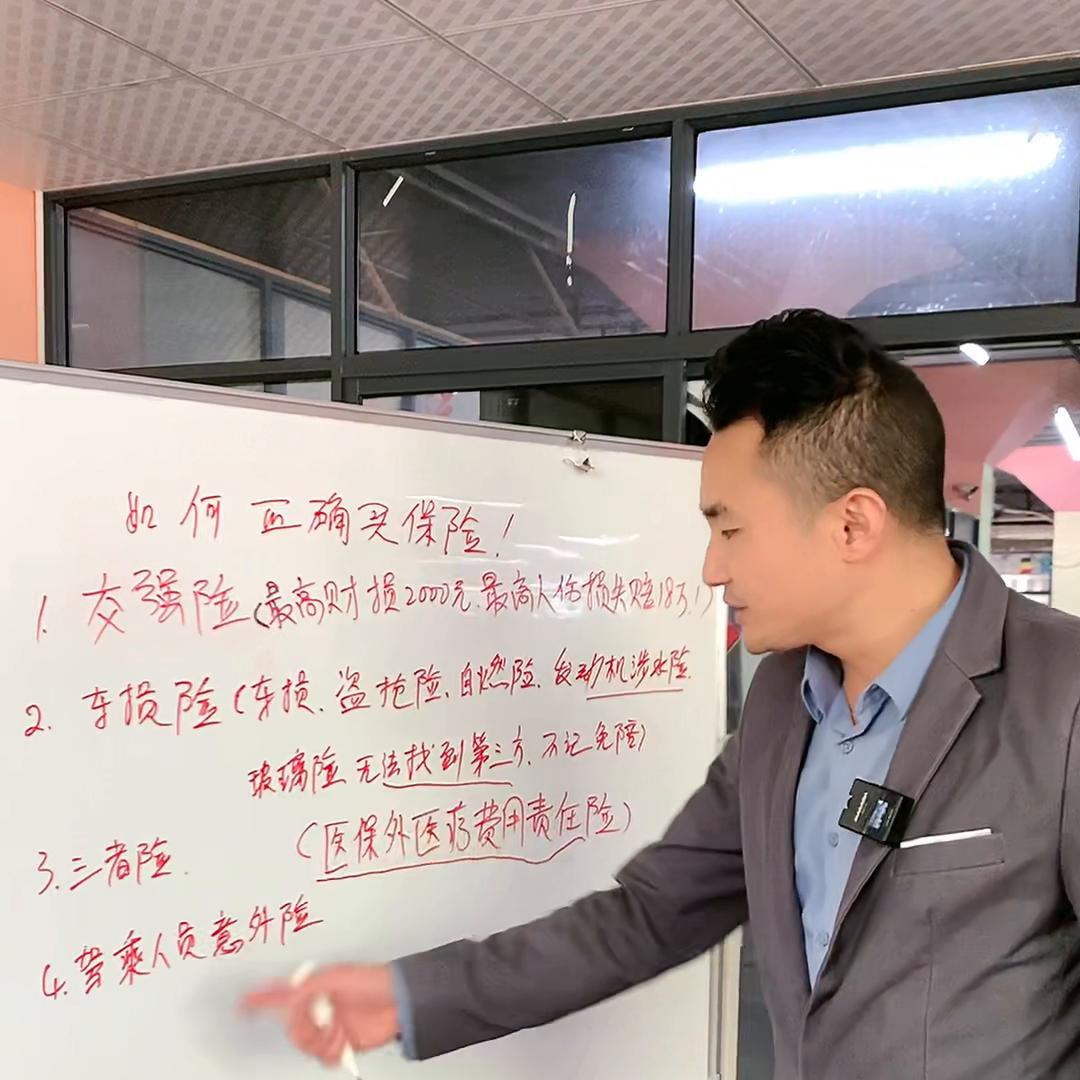 如何正确买保险！
1. 交强险(最高财损2000元.最高人伤损失赔18万！)
2. 车损险(车损、盗抢险、自燃险、发动机涉水险.
玻璃险 无法找到第三方、不记免赔)
3. 三者险. (医保外医疗费用责任险)
4. 驾乘人员意外险